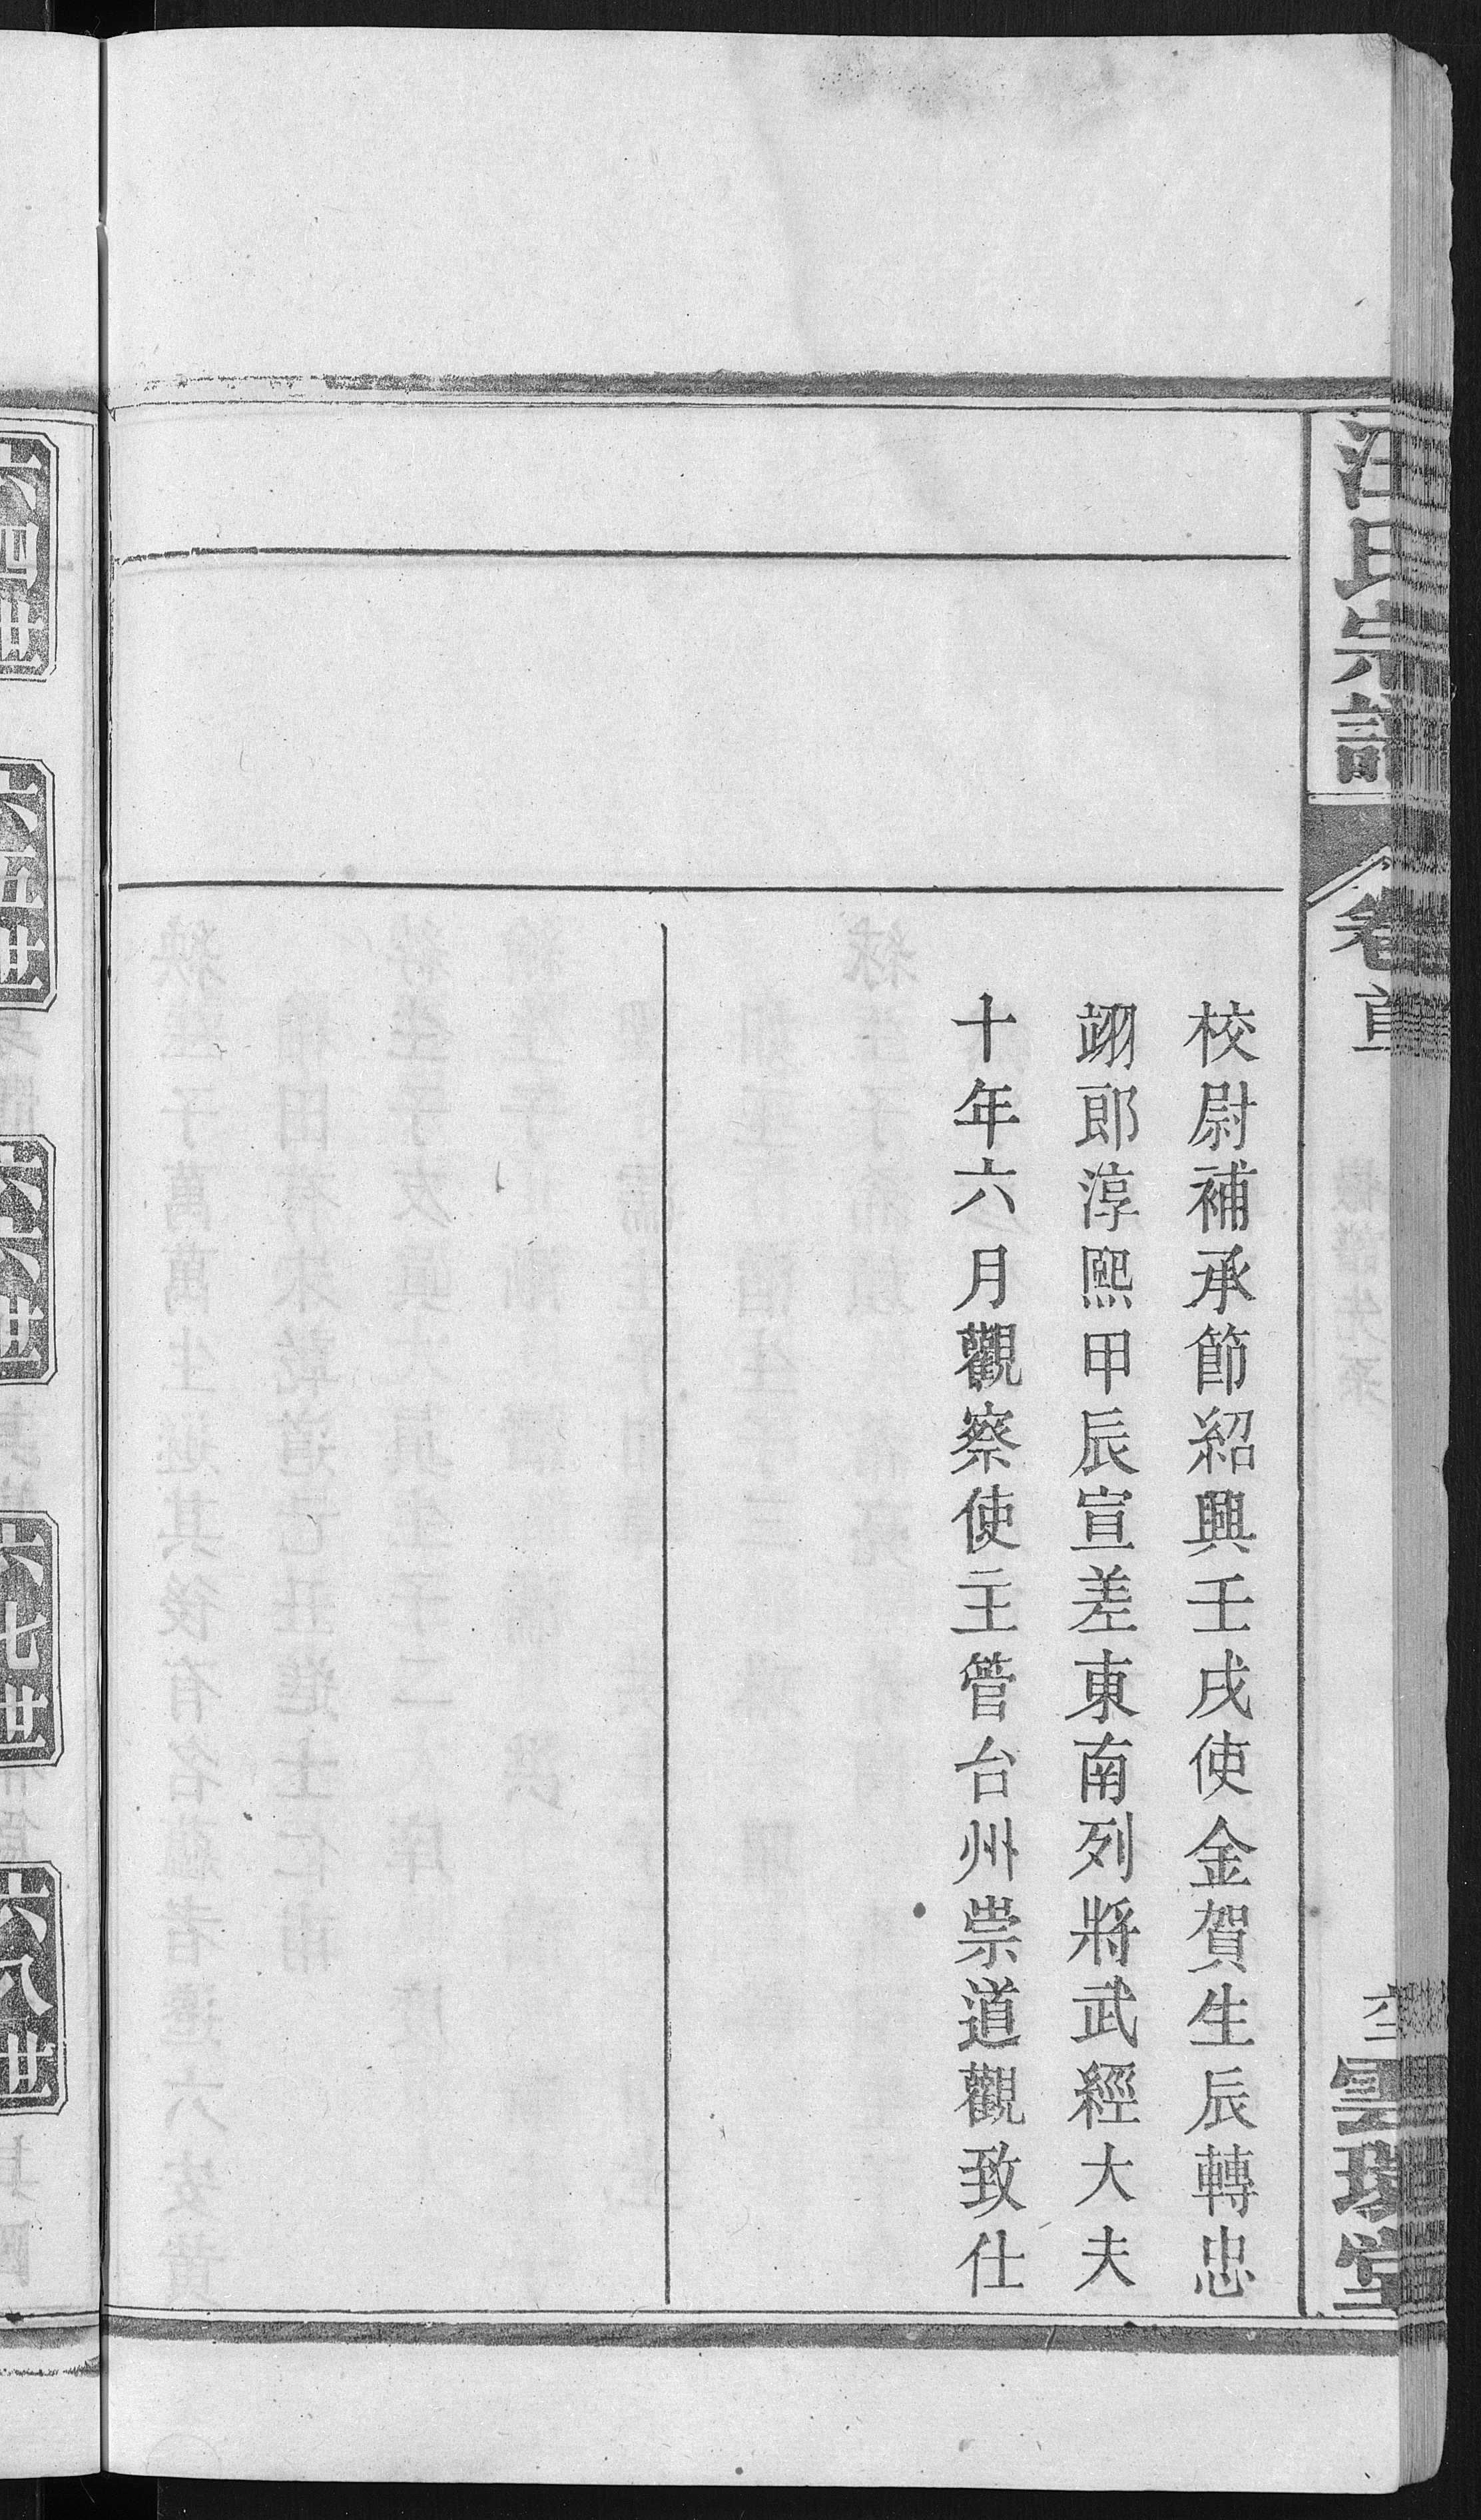 汪氏宗譜
卷首
校尉補承節紹興壬戌使金賀生辰轉忠
翊郎淳熙甲辰宣差東南列將武經大夫
十年六月觀察使主管台州崇道觀致仕
六四世
六五世
六六世
六七世
六八世